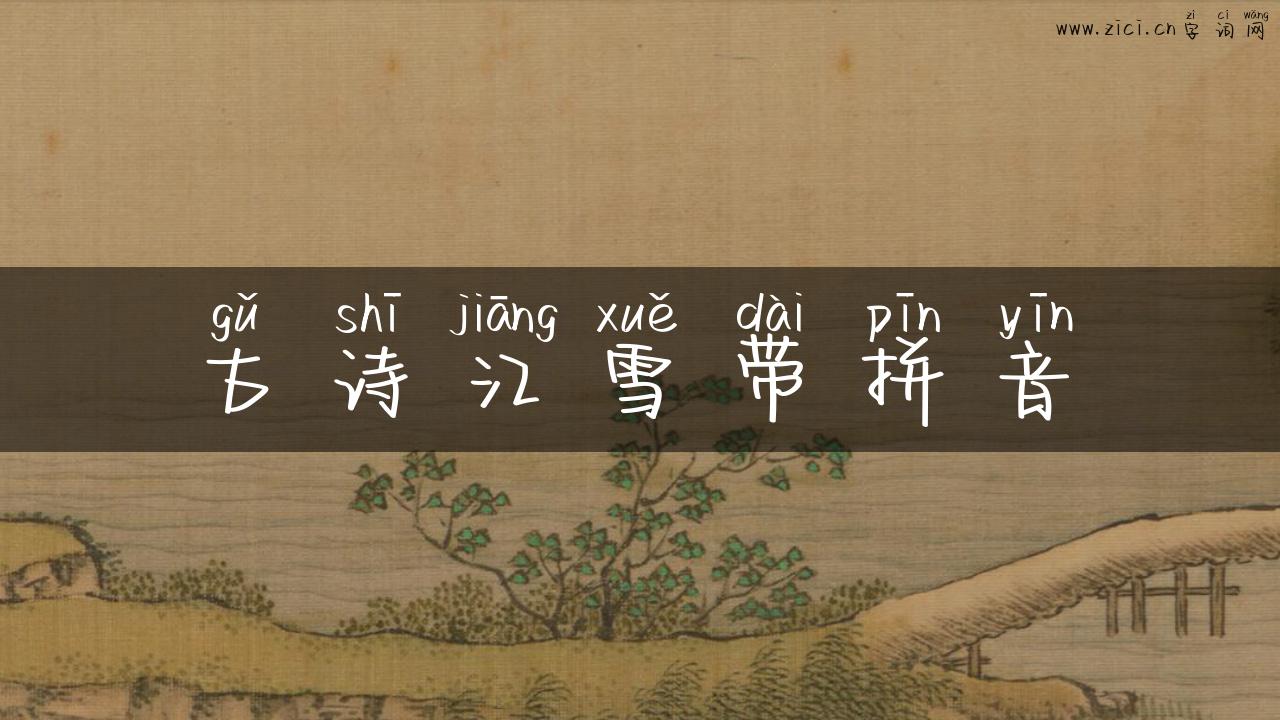 zì cí wǎng
www.zici.cn 字 词 网
gǔ shī jiāng xuě dài pīn yīn
古 诗 江 雪 带 拼 音